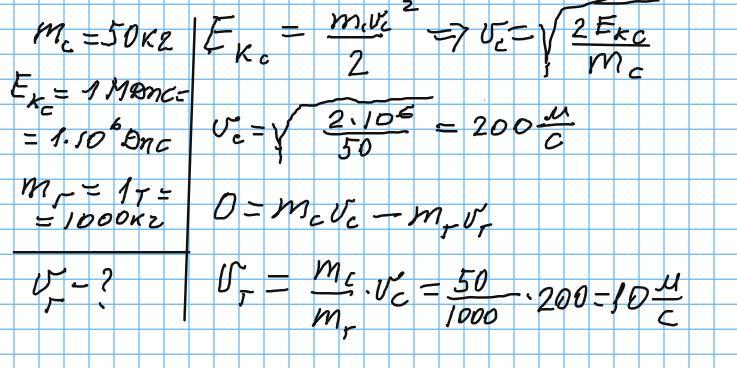 m_c = 50кг
E_кc = 1 МДж =
= 1·10⁶ Дж
m_г = 1т =
= 1000кг
υ_г - ?
E_кc = m_c υ_c² / 2 => υ_c = √(2E_кc / m_c)
υ_c = √(2·10⁶ / 50) = 200 м/с
0 = m_c υ_c − m_г υ_г
υ_г = m_c / m_г · υ_c = 50 / 1000 · 200 = 10 м/с